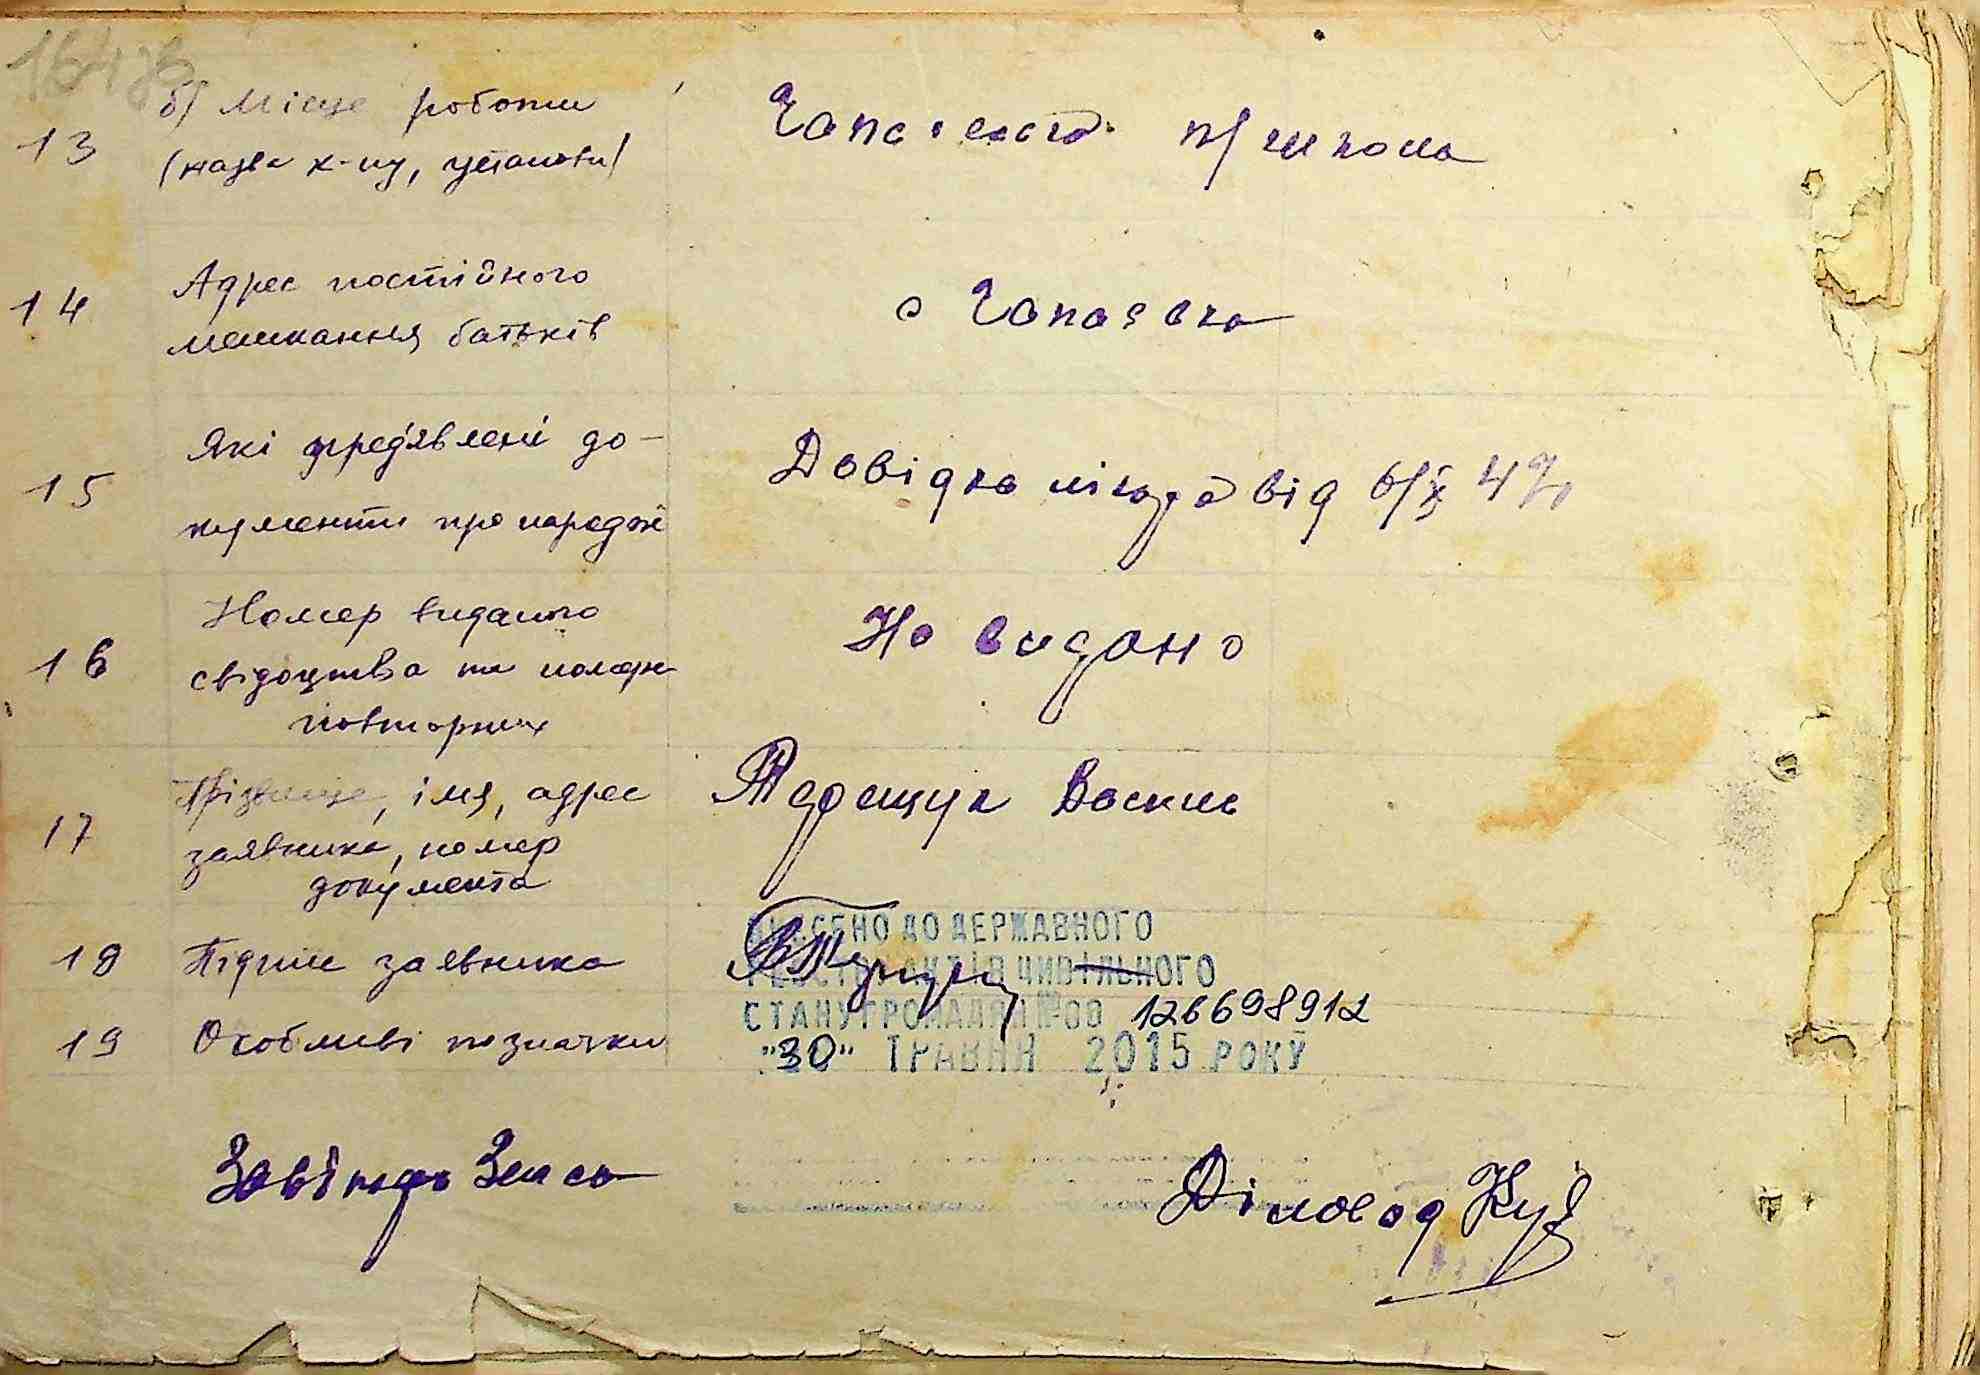 13 б) Місце роботи
(назва к-пу, установи)
п/школа
14 Адрес постійного
мешкання батьків
с Чапаєвка
15 Які пред'явлені до-
кументи про народж
Довідка лікаря від 6/X 4
16 Номер виданого
свідоцтва та номери
повторних
Не видано
17 Прізвище, імя, адрес
заявника, номер
документа
Терещук Василь
18 Підпис заявника
19 Особливі позначки
ВНЕСЕНО ДО ДЕРЖАВНОГО
РЕЄСТРУ АКТІВ ЦИВІЛЬНОГО
СТАНУ ГРОМАДЯН №00 126698912
"30" ТРАВНЯ 2015 РОКУ
Діловод